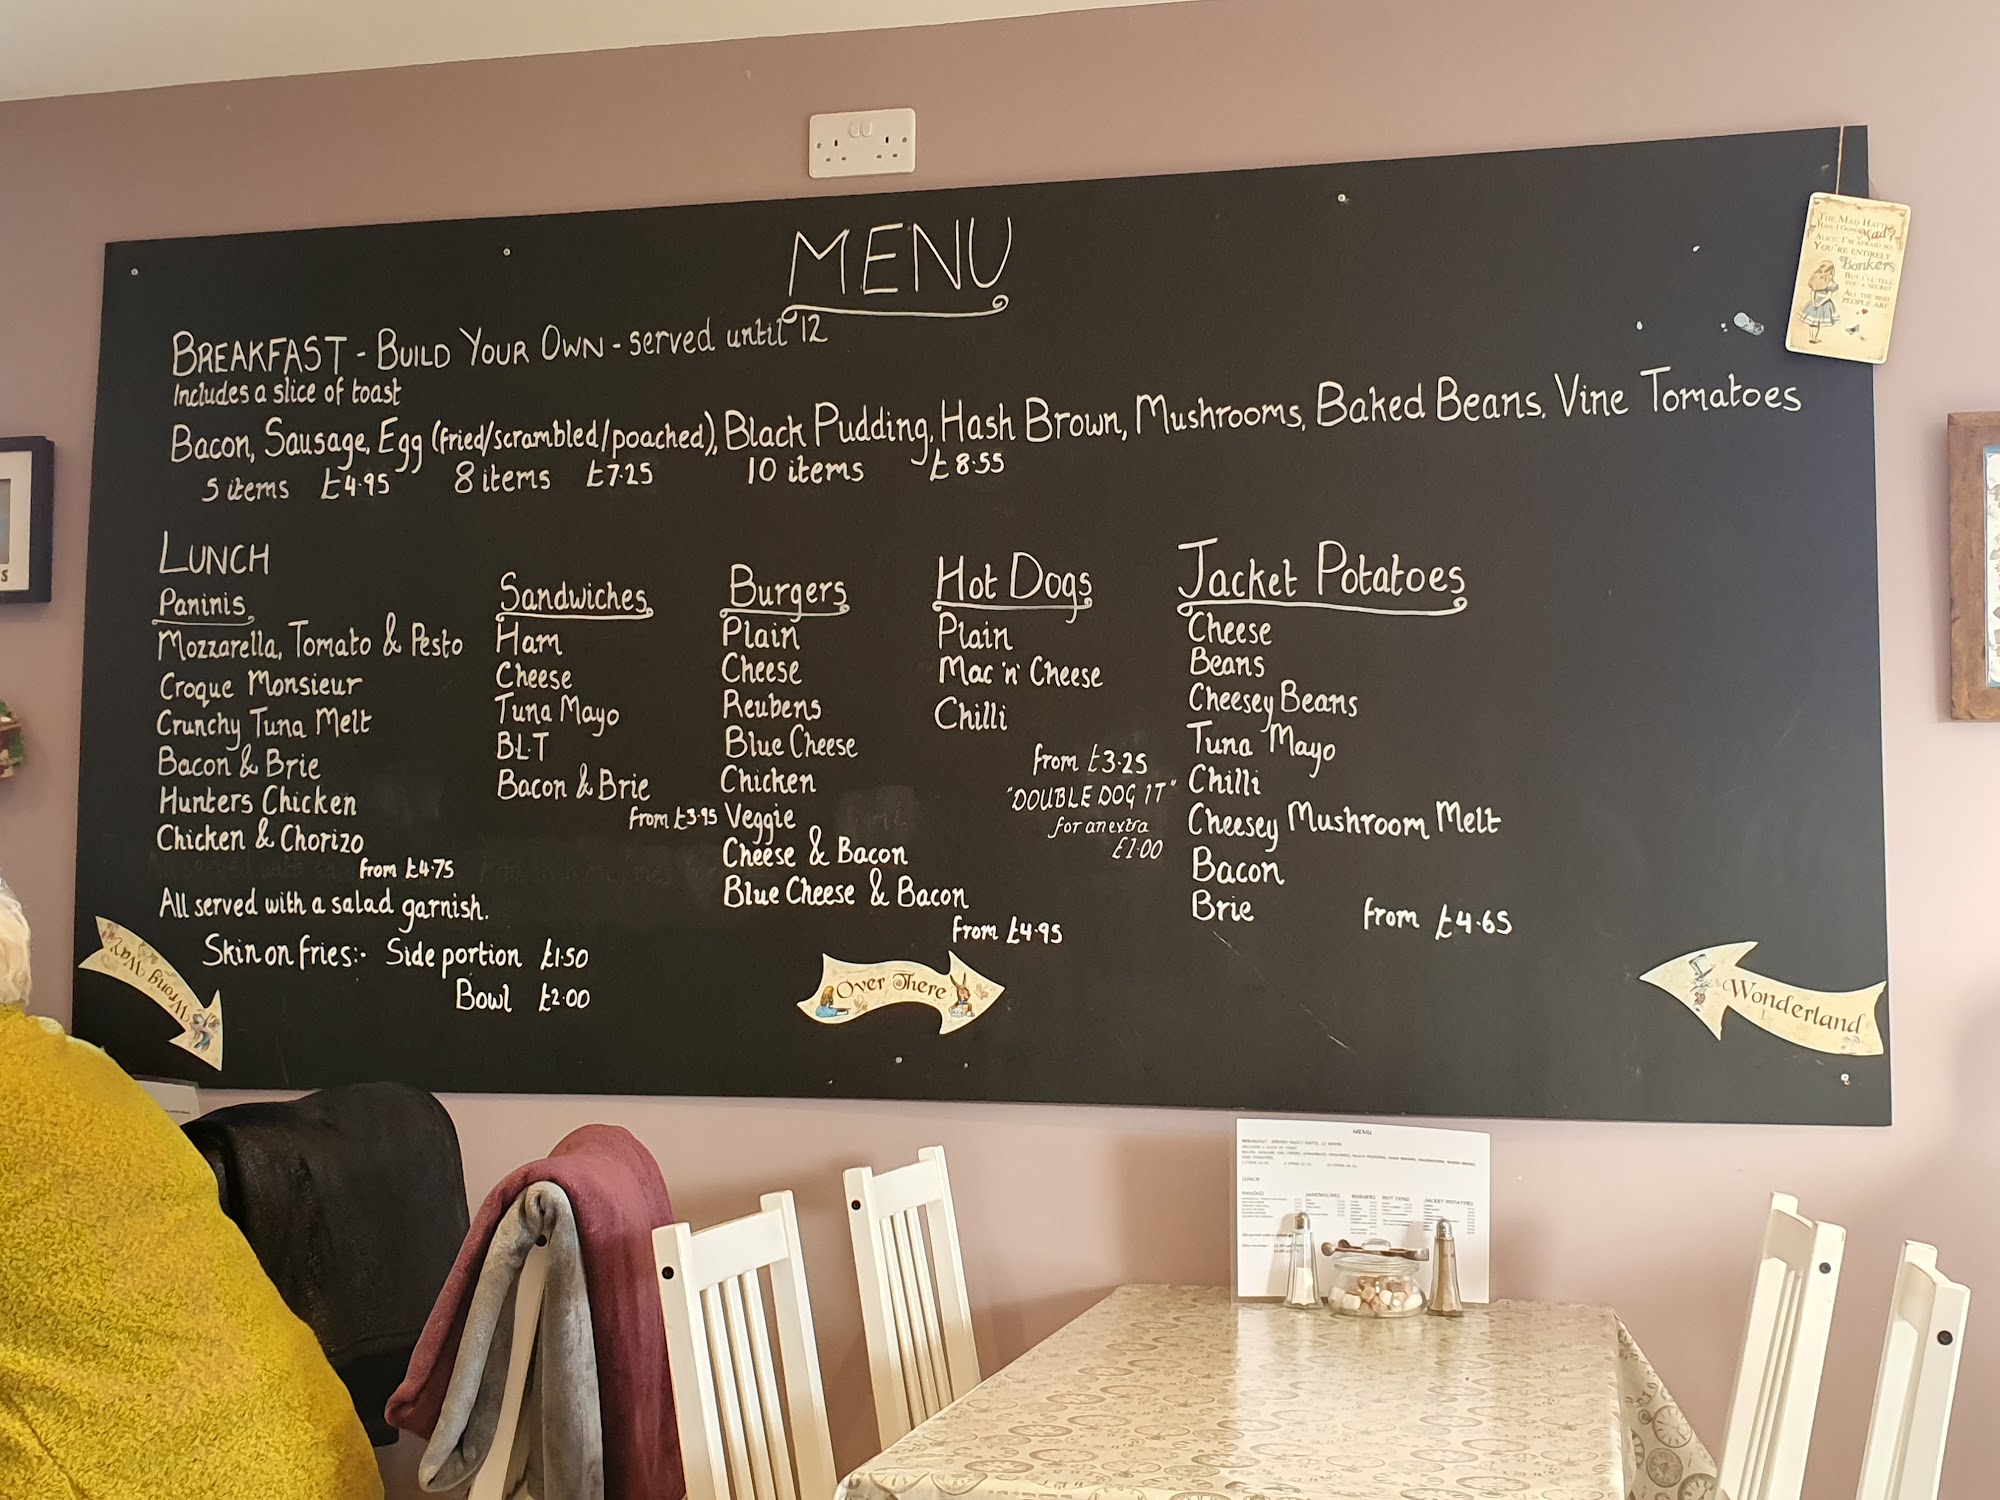 MENU
BREAKFAST - BUILD YOUR OWN - served until 12
Includes a slice of toast
Bacon, Sausage, Egg (fried/scrambled/poached), Black Pudding, Hash Brown, Mushrooms, Baked Beans, Vine Tomatoes
5 items £4.95 8 items £7.25 10 items £8.55
LUNCH
Paninis
Mozzarella, Tomato & Pesto
Croque Monsieur
Crunchy Tuna Melt
Bacon & Brie
Hunters Chicken
Chicken & Chorizo
from £4.75
All served with a salad garnish.
Skin on fries:- Side portion £1.50
Bowl £2.00
Sandwiches
Ham
Cheese
Tuna Mayo
B.L.T
Bacon & Brie
from £3.95
Burgers
Plain
Cheese
Reubens
Blue Cheese
Chicken
Veggie
Cheese & Bacon
Blue Cheese & Bacon
from £4.95
Hot Dogs
Plain
Mac 'n' Cheese
Chilli
from £3.25
"DOUBLE DOG IT"
for an extra
£1.00
Jacket Potatoes
Cheese
Beans
Cheesey Beans
Tuna Mayo
Chilli
Cheesey Mushroom Melt
Bacon
Brie
from £4.65
THE MAD HATTER
HAVE I GONE Mad?
ALICE: I'M AFRAID SO,
YOU'RE ENTIRELY
Bonkers
BUT I'LL TELL
YOU A SECRET
ALL THE BEST
PEOPLE ARE
Wrong Way
Over There
Wonderland
MENU
LUNCH
PANINIS SANDWICHES BURGERS HOT DOGS JACKET POTATOES